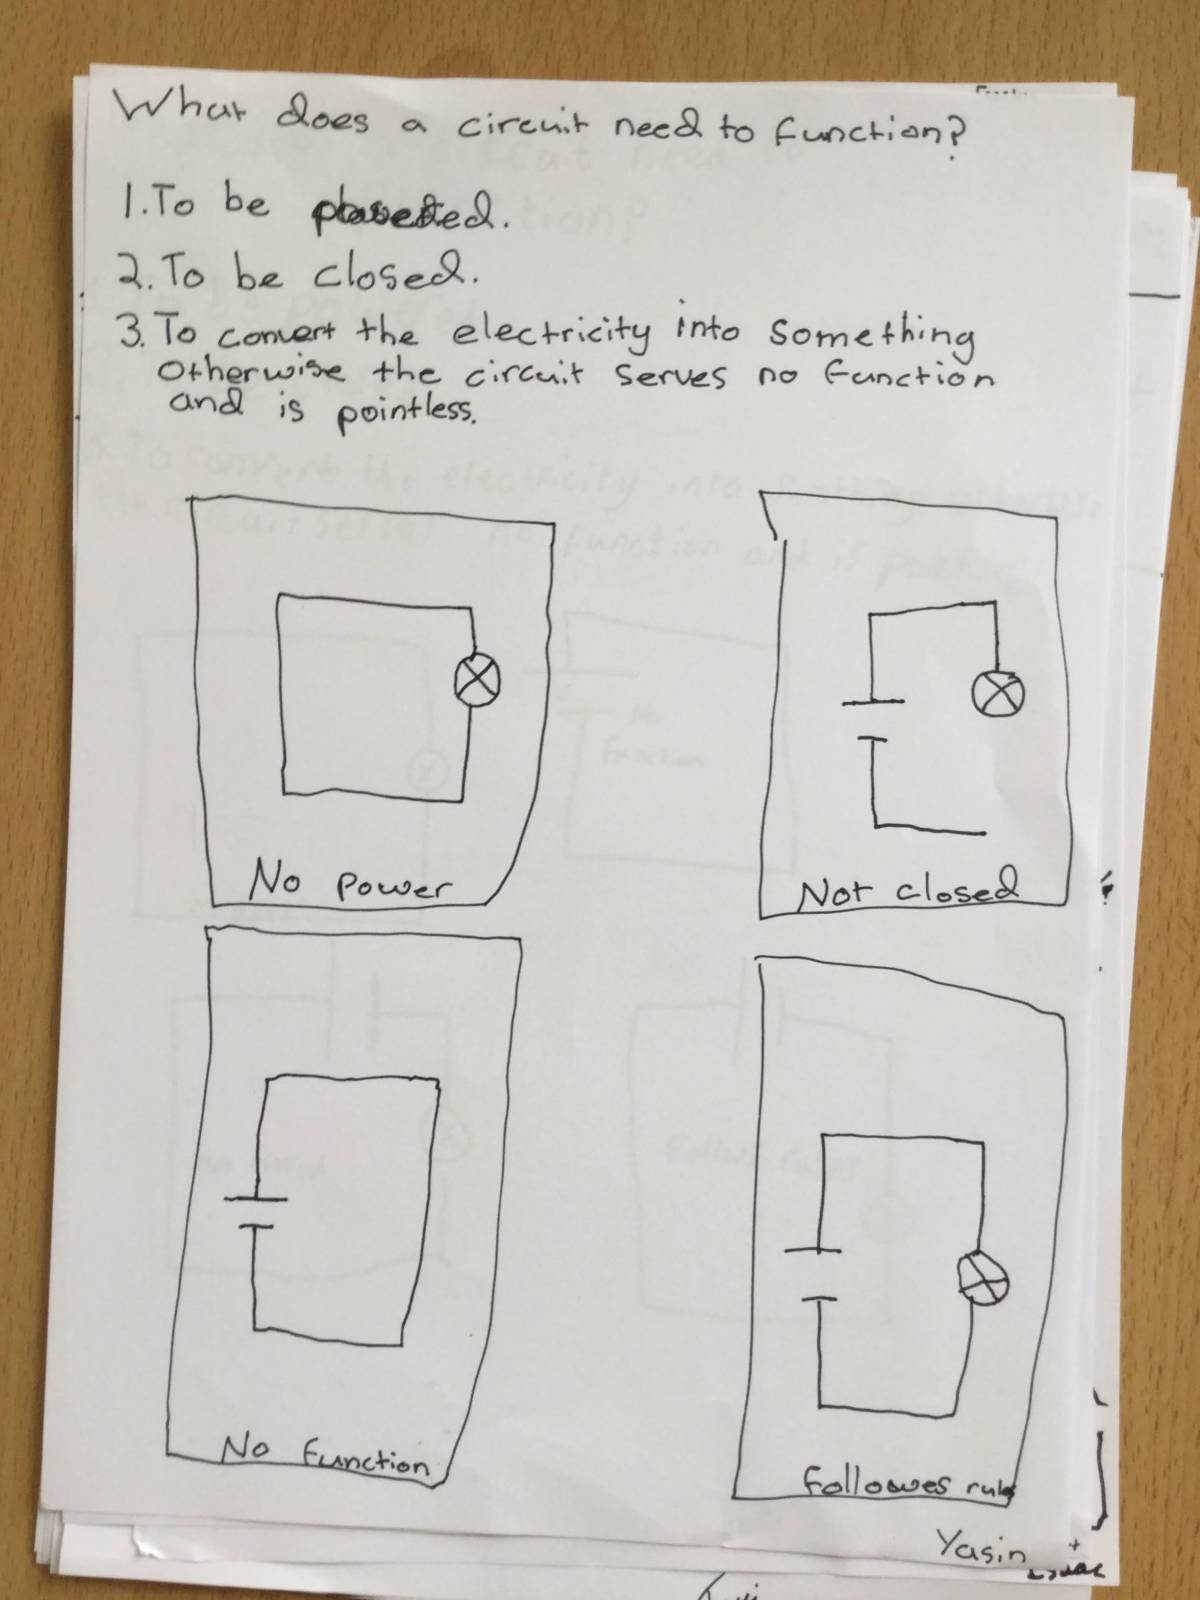 What does a circuit need to function?
1. To be
2. To be closed.
3. To convert the electricity into something
otherwise the circuit serves no function
and is pointless.
No power
Not closed
No function
followes rules
Yasin +